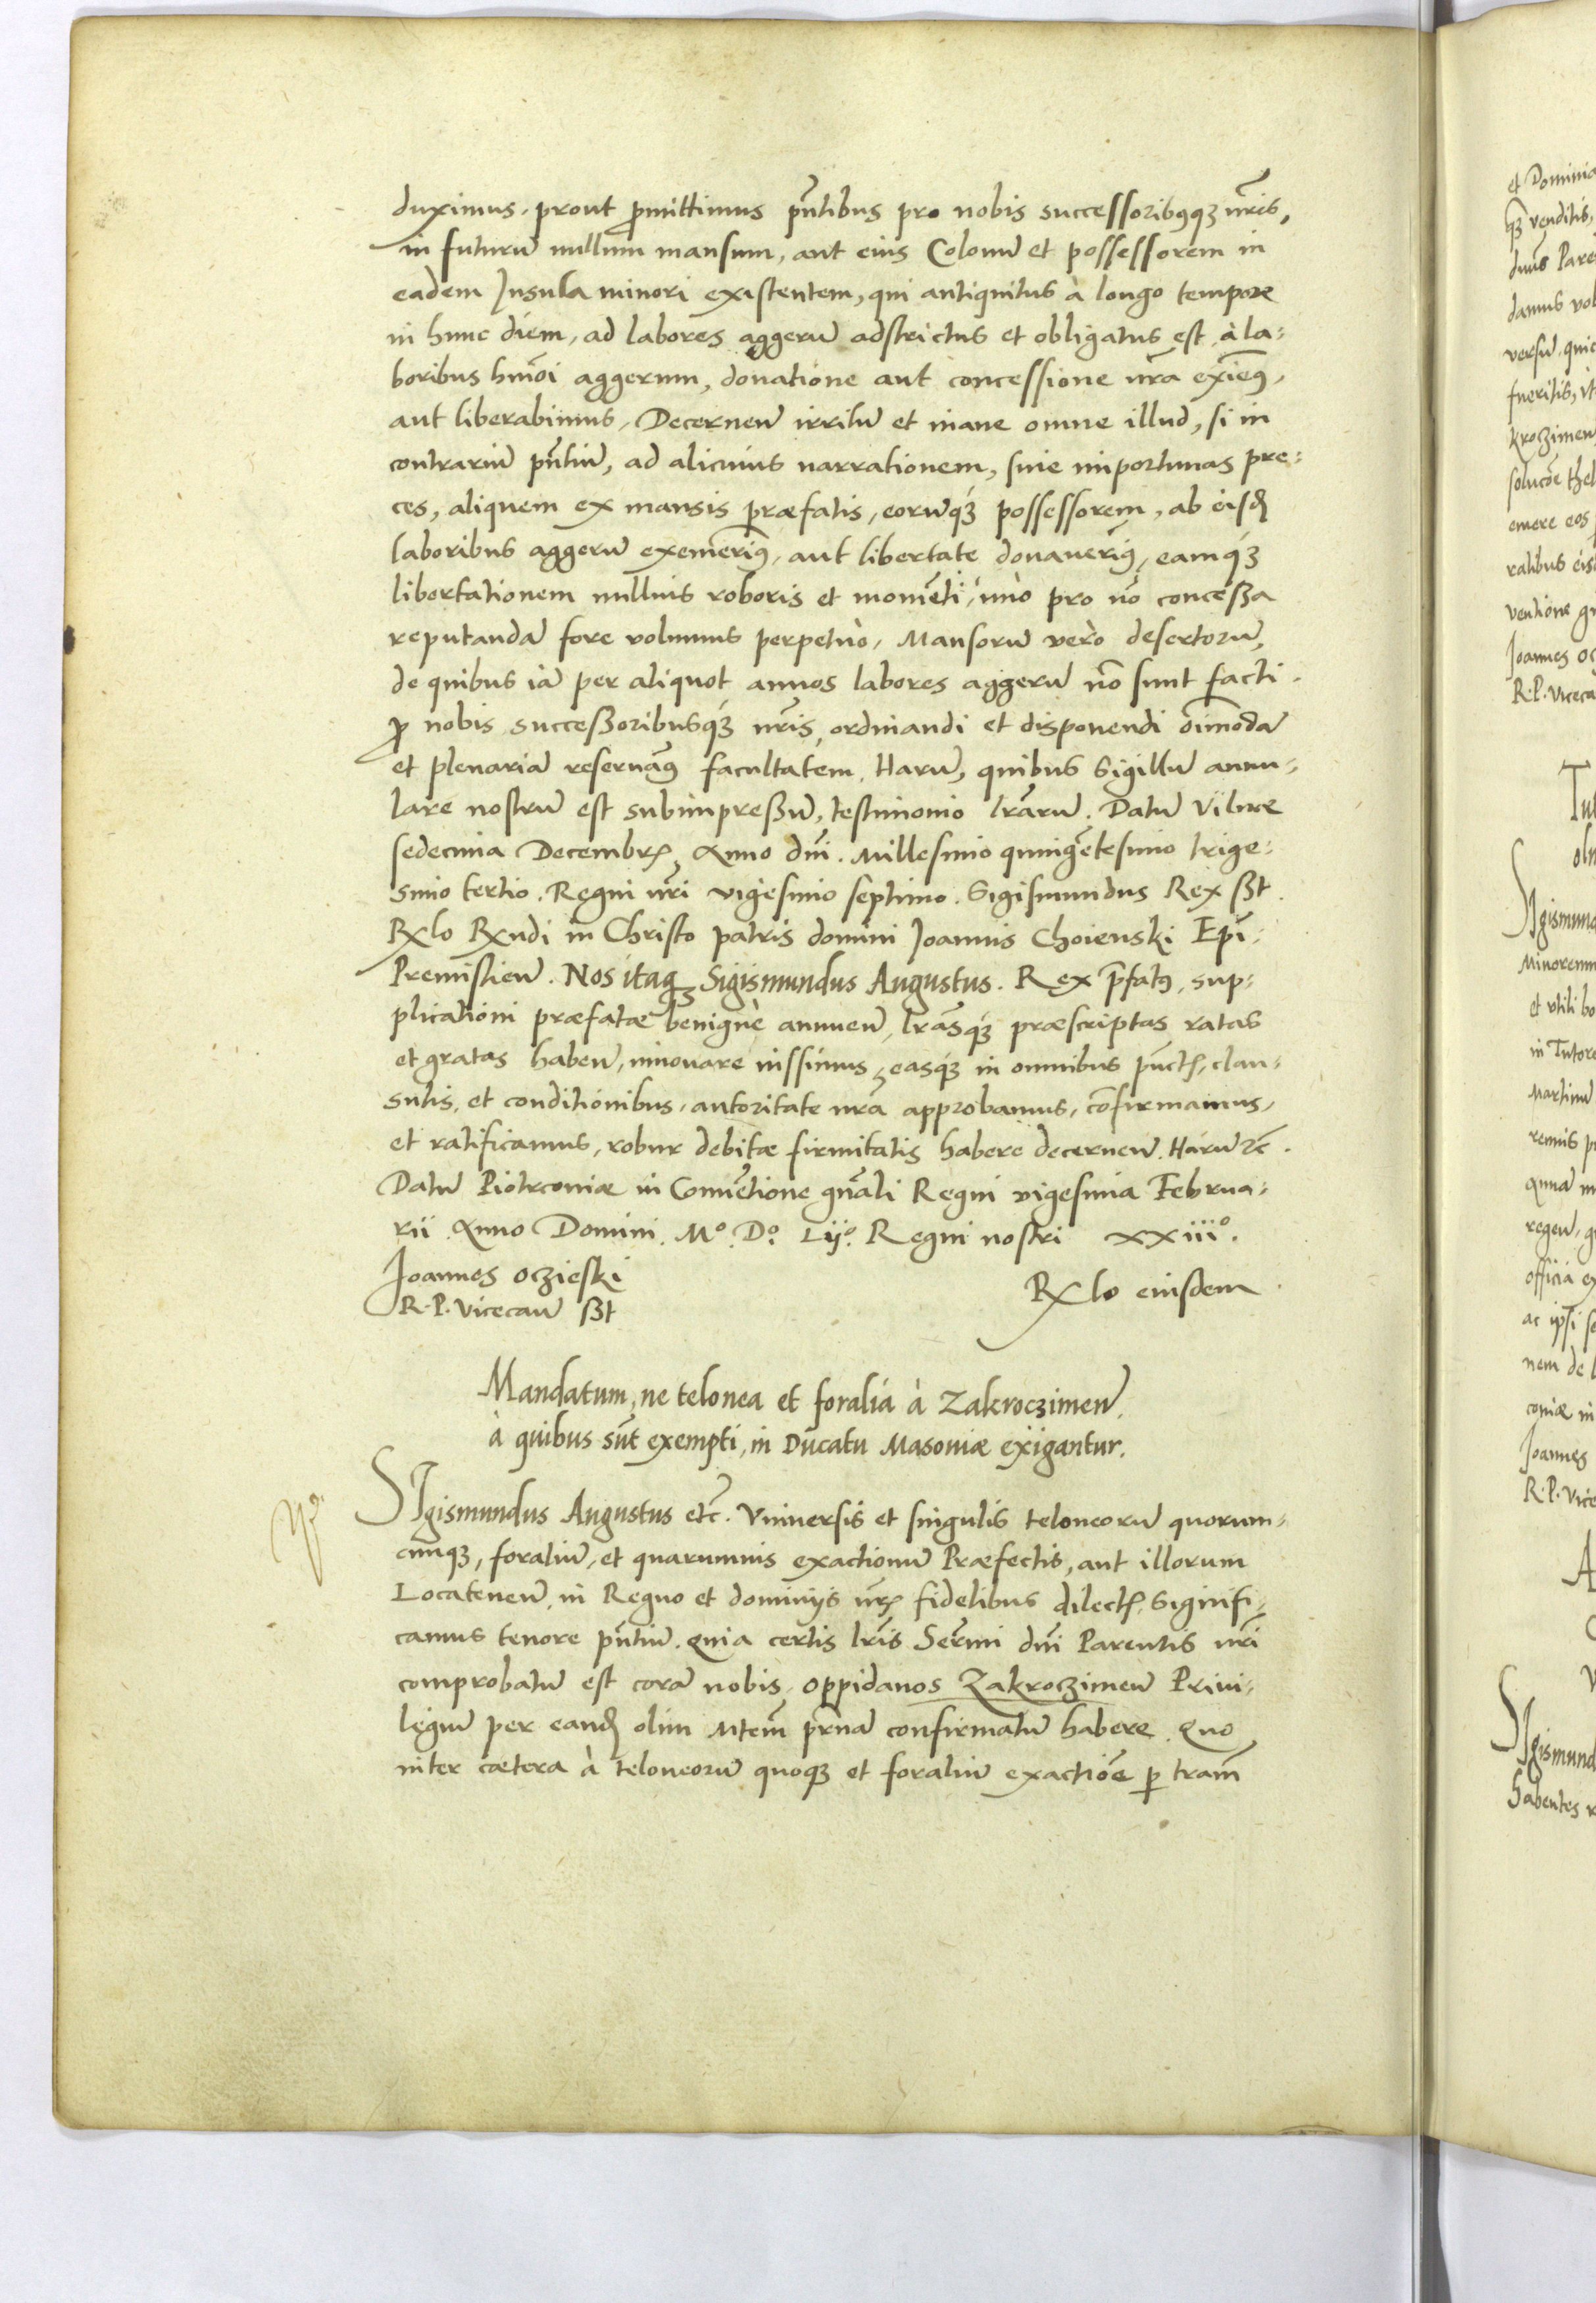 duximus, prout p̱mittimus pn̄tibus pro nobis successoribꝰqꝫ nr̄is,
in futurū nullum mansum, aut eius Colonū et possessorem in
eadem Insula minori existentem, qui antiquitus à longo tempore
in hunc diem, ad labores aggerū adstrictus et obligatus est, à la-
boribus hmōi aggerum, donatione aut concessione nr̄a eximeꝰ,
aut liberabimus, Decernen̄ irritū et inane omne illud, si in
contrariū pn̄tiū, ad alicuius narrationem, siue importunas pre-
ces, aliquem ex mansis præfatis, eorūqꝫ possessorem, ab eisd̄
laboribus aggerū exemerimꝰ, aut libertate donauerimꝰ, eamqꝫ
libertationem nullius roboris et momēti, imò pro nō conceßa
reputandā fore volumus perpetuò, Mansorū verò desertorū,
de quibus iā per aliquot annos labores aggerū nō sunt facti.
ꝓ nobis succeßoribusqꝫ nr̄is, ordinandi et disponendi oīmodā
et plenariā reseruām̄ꝰ facultatem, Harū, quibus sigillū annu-
lare nostrū est subimpreßū, testimonio lr̄arū. Datū Vilnæ
sedecima Decembrꝭ Anno dn̄i. Millesimo quingētesimo trige-
simo tertio. Regni nr̄i vigesimo septimo. Sigismundus Rex ßt
Rx̄lo Rx̄ndi in Christo patris domini Joannis Choienski Ep̄i
Premislien̄. Nos itaqꝫ Sigismundus Augustus. Rex p̄fatꝰ, sup-
plicationi præfatæ benignè annuen̄, lr̄asqꝫ præscriptas ratas
et gratas haben̄, innouare iussimus, easqꝫ in omnibus pūctꝭ, clau-
sulis, et conditionibus, autoritate nr̄a approbamus, cōfirmamus,
et ratificamus, robur debitæ firmitatis habere decernen̄. Harū ꝛc̄.
Datū Piotrcouiæ in Conuētione gn̄ali Regni vigesima Februa-
rii Anno Domini. Mº. Dº. Lijº. Regni nostri xxiiiº.
Joannes Oczieski
R. P. Vicecan̄ ßt
Rx̄lo eiusdem
Mandatum, ne telonea et foralia à Zakroczimen̄,
à quibus sūt exempti, in Ducatu Masouiæ exigantur.
SIgismundus Augustus etc̄. Vniuersis et singulis teloneorū quorum-
cunqꝫ, foraliū, et quarumuis exactionū Præfectis, aut illorum
Locatenen̄, in Regno et dominijs nr̄ꝭ fidelibus dilectꝭ. Signifi-
camus tenore pn̄tiū. Quia certis lr̄is Serm̄i dn̄i Parentis nr̄i
comprobatū est corā nobis, oppidanos Zakroczimen̄ Priui-
legiū per eand̄ olim Mtem̄ pr̄nā confirmatū habere. Quo
inter cætera à teloneorū quoqꝫ et foraliū exactiōe p̱ tram̄